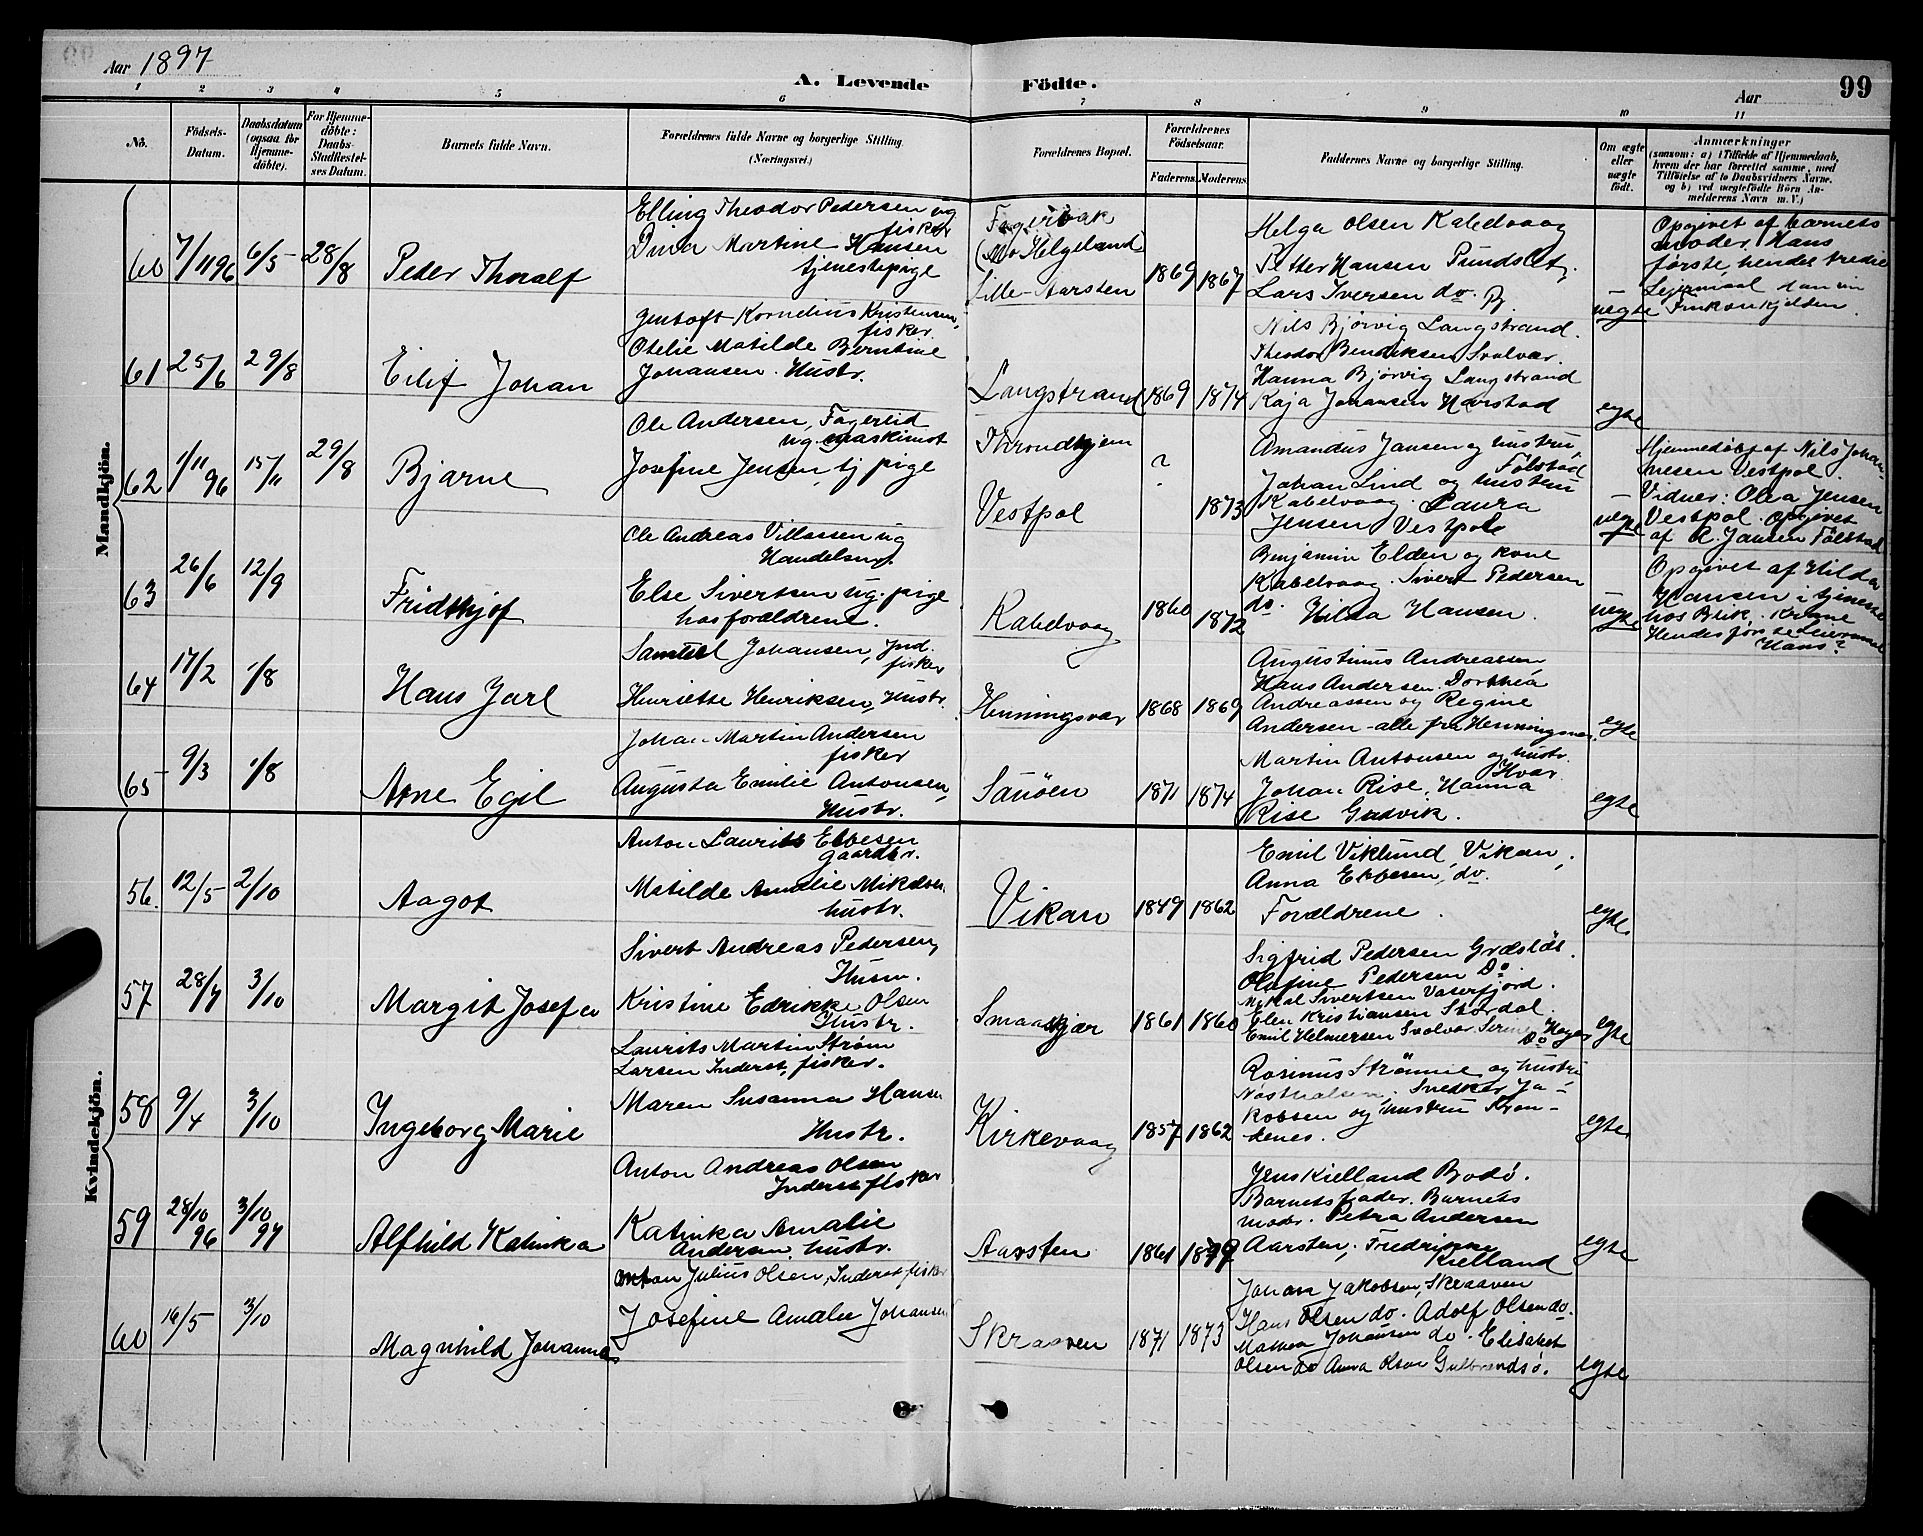 Aar 1897
A. Levende Födte.
Aar
99
1 2 3 4 5 6 7 8 9 10 11
No.
Födsels-Datum.
Daabsdatum (ogsaa for Hjemmedöbte).
For Hjemmedöbte: Daabs-Stadfestelses Datum.
Barnets fulde Navn.
Forældrenes fulde Navne og borgerlige Stilling. (Næringsvei.)
Forældrenes Bopæl.
Forældrenes Födselsaar.
Faderens. Moderens.
Faddernes Navne og borgerlige Stilling.
Om ægte eller uægte födt.
Anmærkninger
(saasom: a) i Tilfælde af Hjemmedaab,
hvem der har forrettet samme, med
Tilföielse af to Daabsvidners Navne,
og b) ved uægtefödte Börn An-
melderens Navn m. V.)
Mandkjön.
60 7/11 96 6/5 28/8 Peder Thoralf
Elling Theodor Pedersen ug
fisker
Dina Martine Hansen
tjenestepige
Fagervik
(Mo Helgeland
Lille-Aarsten
1869 1867
Helga Olsen Kabelvaag
Petter Hansen Pundslet,
Lars Iversen do.
uegte
Opgivet af barnets
moder. Hans
første, hendes tredie
Leiermaal
Finkonkjelden.
61 25/6 29/8 Eilif Johan
Gustoft Kornelius Kristensen,
fisker.
Otelie Matilde Berntine
Johansen. Hustr.
Langstrand 1869 1874
Nils Bjørvig Langstrand.
Theodor Bendiksen Svolvær.
Hanna Bjørvig Langstrand
Kaja Johansen Harstad
egte
62 1/11 96 15/11 29/8 Bjarne
Ole Andersen, Fagerlid
ug. maskinist
Josefine Jensen, tj pige
Throndhjem
Vestpol
? 1873
Amandus Jansen og hustru,
Følstad
Johan Lind og hustru
Kabelvaag. Laura
Jensen Vestpol
uegte
Hjemmedöbt af Nils Johan-
nesen Vestpol.
Vidner: Olea Jensen
Vestpol. Opgivet
af A. Jansen Følstad
63 26/6 12/9 Fridthjof
Ole Andreas Villassen ug
Handelsm.
Else Sivertsen ug. pige
hos forældrene.
Kabelvaag 1860 1872
Benjamin Elden og kone
Kabelvaag. Sivert Pedersen
do. Hilda Hansen.
uegte
Opgivet af Hilda
Hansen i tjeneste
hos Blik.
Hendes første Leiermaal
Hans?
64 17/2 1/8 Hans Jarl
Samuel Johansen, Ind.
fisker
Henriette Henriksen, Hustr.
Henningsvær 1868 1869
Augustinus Andreassen
Hans Andersen. Dorthea
Andreassen og Regine
Andersen - alle fra Henningsvær.
egte
65 9/3 1/8 Arne Egil
Johan Martin Andersen
fisker
Augusta Emilie Antonsen,
Hustr.
Sauöen 1871 1874
Martin Antonsen og hustr.
Hvar.
Johan Rise, Hanna
Rise Gudvik.
egte
Kvindekjön.
56. 12/5 2/10 Aagot
Anton Laurits Ebbesen
gaardbr.
Matilde Amalie Mikalsen
hustr.
Vikan 1849 1862
Emil Viklund, Vikan,
Anna Ebbesen, do.
Forældrene.
egte.
57 28/7 3/10 Margit Josefa
Sivert Andreas Pedersen,
Husm.
Kristine Edrikke Olsen
Hustr.
Smaaskjær 1861 1860
Sigfrid Pedersen Grdsløt.
Olafine Pedersen Do
Mikal Sivertsen Vaterfjord.
Elen Kristiansen Stordal.
Emil Helmersen Svolvær. Hagen
Do
egte
58 9/4 3/10 Ingeborg Marie
Laurits Martin Strøm
Larsen Inderst, fisker.
Maren Susanna Hansen
Hustr.
Kirkevaag 1857 1862
Rasmus Strømme og hustru
Snedker Ja-
kobsen og hustru Kron-
kenes.
egte.
59 28/10 96 3/10 97 Alfhild Katinka
Anton Andreas Olsen
Inderst fisker
Katinka Amalie
Andersen, hustr.
Aarsten 1861
Jens Kielland Bodö.
Barnets fader. Barnets
moder. Petra Andersen
Aarsten, Fredrikke
Kielland
egte
60 16/5 3/10 Magnhild Johanna
Anton Julius Olsen, Inderst, fisker
Josefine Amalie Johansen
Skraaven 1871 1873
Johan Jakobsen, Skraaven
Hans Olsen do. Adolf Olsen do.
Mathea Johansen do. Elisabet
Olsen do Anna Olsen Gulbrandsö.
egte